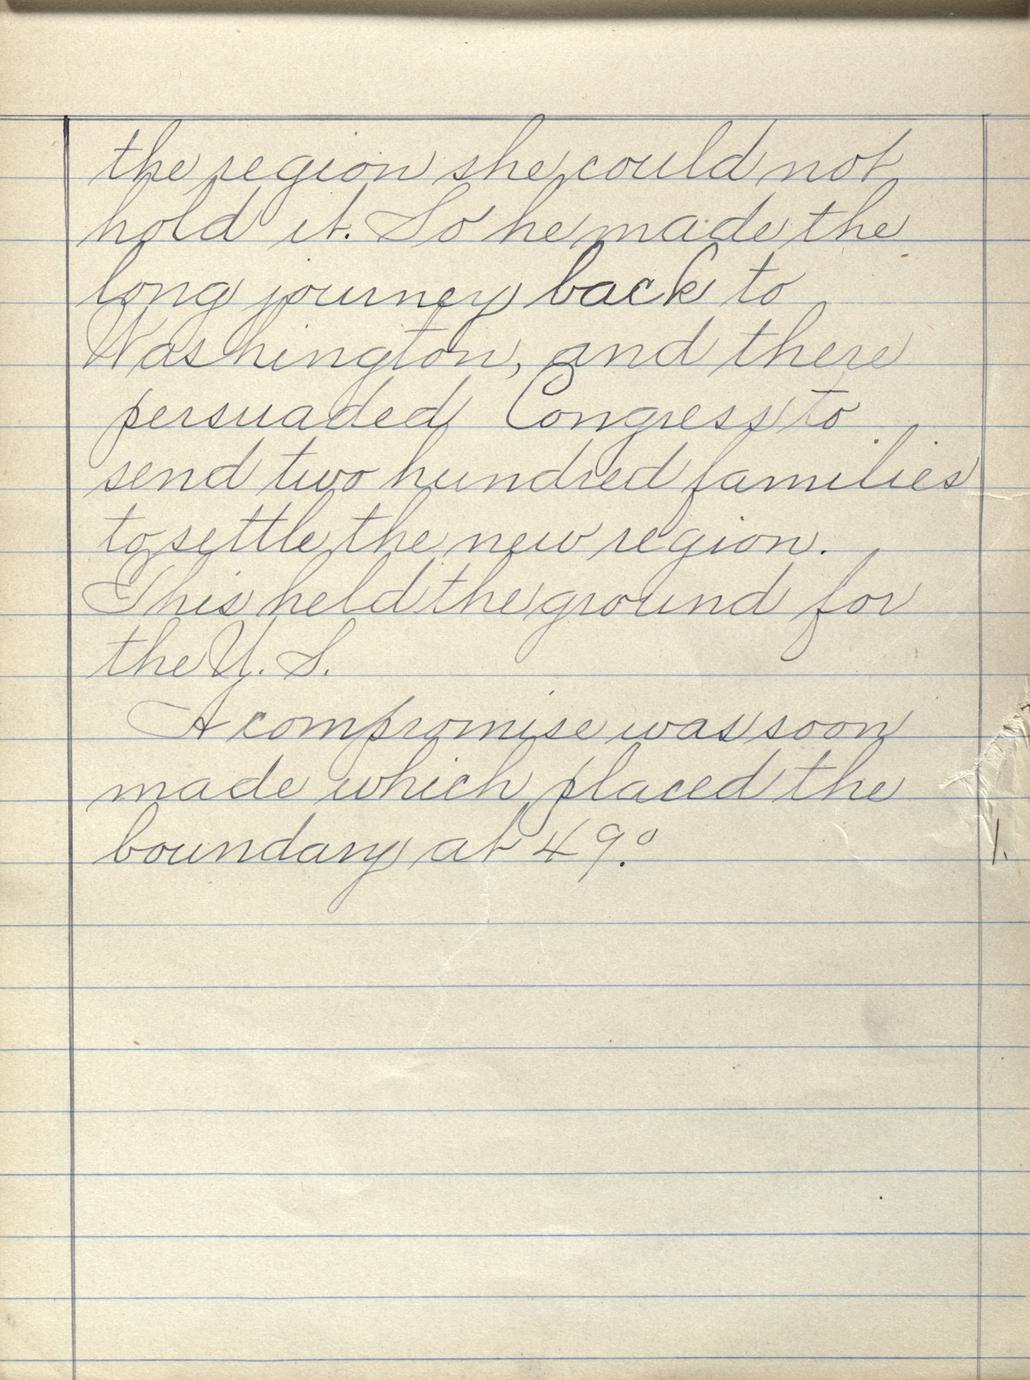 the region she could not
hold it. So he made the
long journey back to
Washington, and there
persuaded Congress to
send two hundred families
to settle the new region.
This held the ground for
the U. S.
A compromise was soon
made which placed the
boundary at 49.°
1.